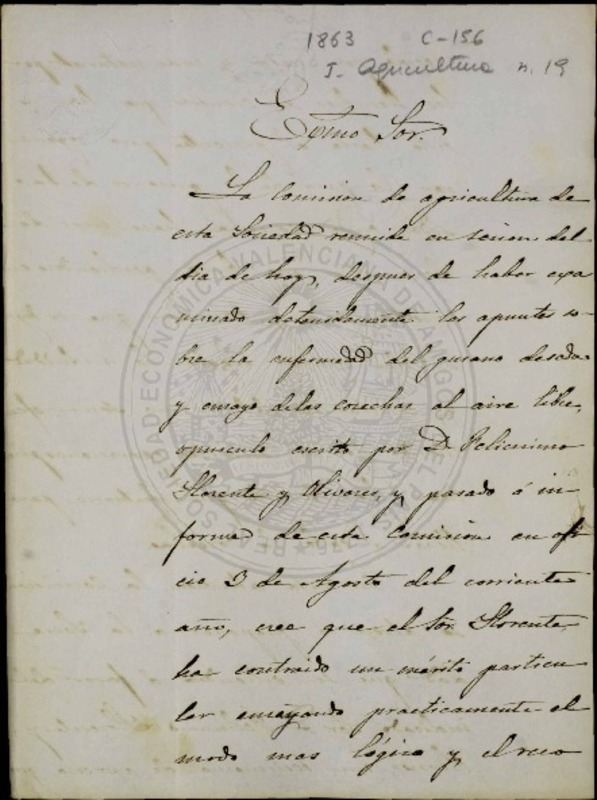 1863 C-156
I- Agricultura n. 19
Exmo Sor.
La Comision de agricultura de
esta Sociedad reunida en sesion del
dia de hoy, despues de haber exa
minado detenidamente los apuntes so-
bre la enfermedad del gusano de seda
y ensayo de las cosechas al aire libre,
opusculo escrito por D. Feliciano
Llorente y Olivares, y pasado á in-
forme de esta Comision en ofi
cio 3 de Agosto del corriente
año, cree que el Sor. Llorente,
ha contraido un mérito particu
lar ensayando practicamente el
modo mas lógico y el reco
REAL SOCIEDAD ECONOMICA VALENCIANA DE AMIGOS DEL PAIS 1776